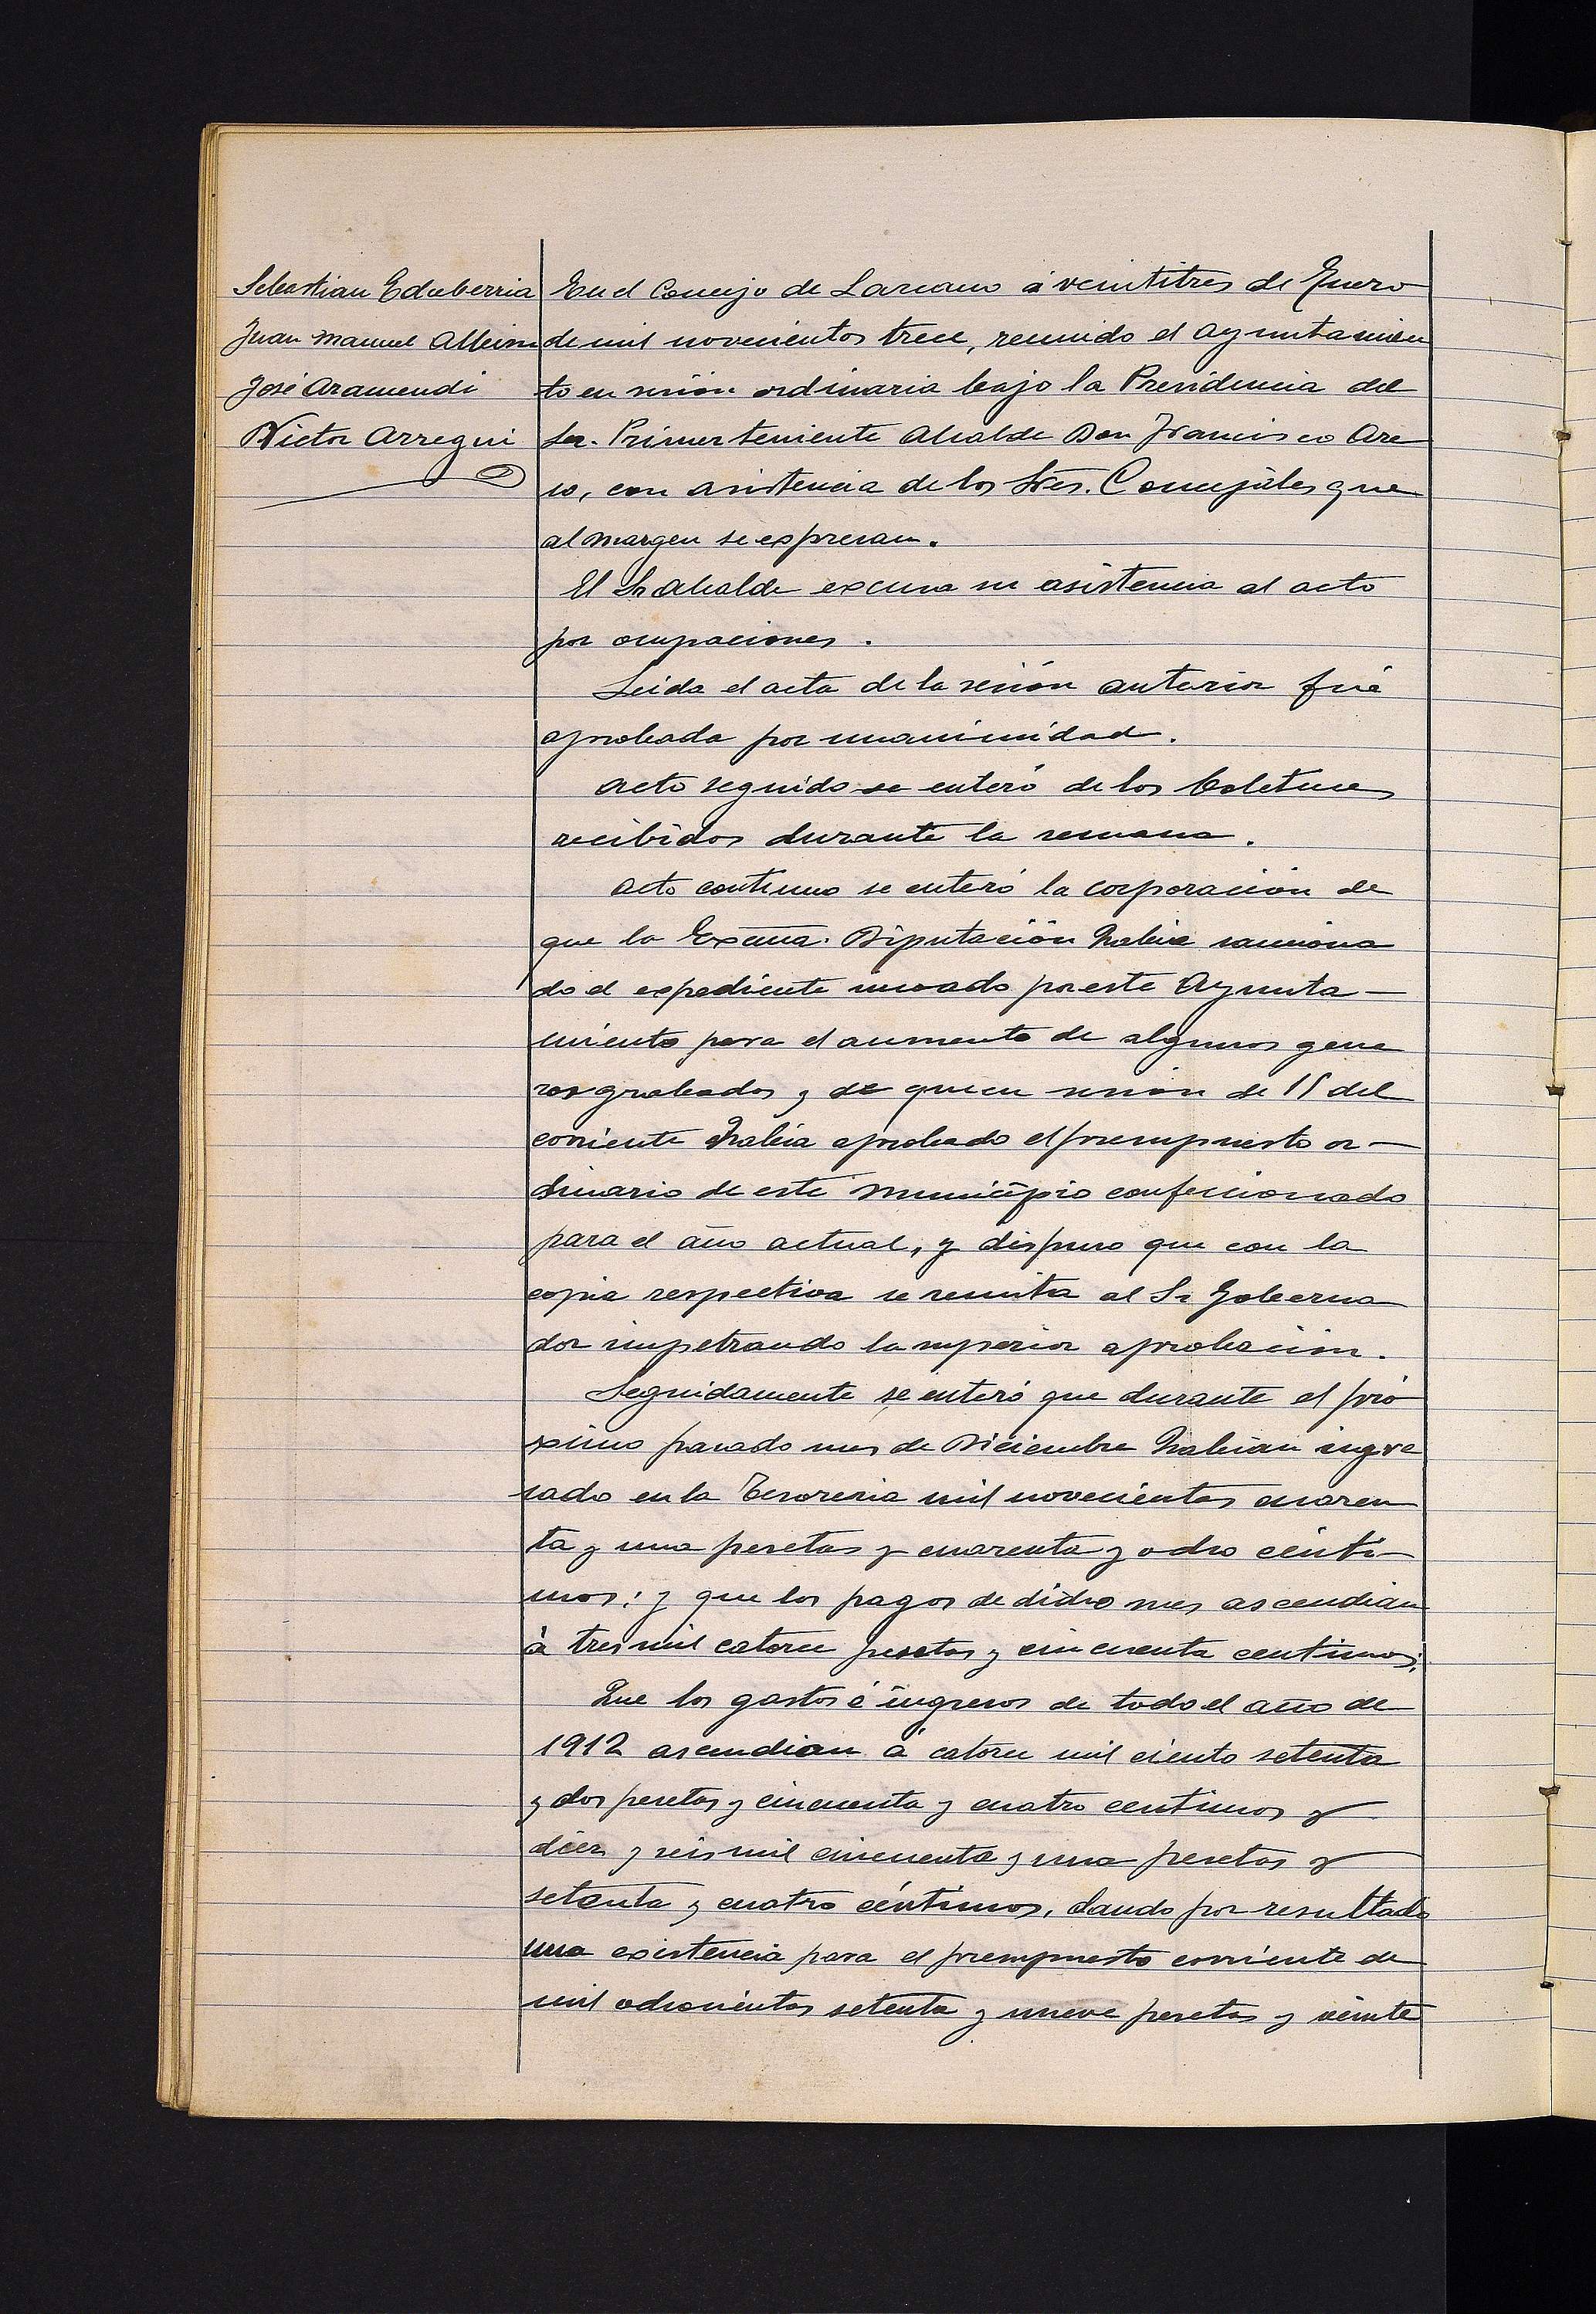 Sebastian Echeberria
Juan Manuel Albisu
José Aramendi
Victor Arregui
En el Concejo de Lazcano á veintitres de Enero
de mil novecientos trece, reunido el Ayuntamien
to en sesión ordinaria bajo la Presidencia del
Sr. Primer teniente Alcalde Don Francisco
con asistencia de los Sres. Concejáles que
al margen se expresan.
El Sr Alcalde excusa su asistencia al acto
por ocupaciones.
Leida el acta de la sesión anterior fué
aprobada por unanimidad.
Acto seguido se enteró de los boletines
recibidos durante la semana.
Acto continuo se enteró la corporación de
que la Excma. Diputación habia sanciona
do el expediente incoado por este Ayunta-
miento para el aumento de algunos gene
ros grabados y de que en sesión de 15 del
corriente habia aprobado el presupuesto or-
dinario de este municipio confeccionado
para el año actual, y dispuso que con la
copia respectiva se remita al Sr Goberna
dor impetrando la superior aprobación.
Seguidamente se enteró que durante el pró
ximo pasado mes de Diciembre habian ingre
sado en la Tesoreria mil novecientas cuaren
ta y una pesetas y cuarenta y ocho cénti-
mos; y que los pagos de dicho mes ascendian
á tres mil catorce pesetas y cincuenta centimos;
Que los gastos é ingresos de todo el año de
1912 ascendian á catorce mil ciento setenta
y dos pesetas y cincuenta y cuatro centimos y
diez y seis mil cincuenta y una pesetas y
setenta y cuatro céntimos, dando por resultado
una existencia para el presupuesto corriente de
mil ochocientas setenta y nueve pesetas y veinte